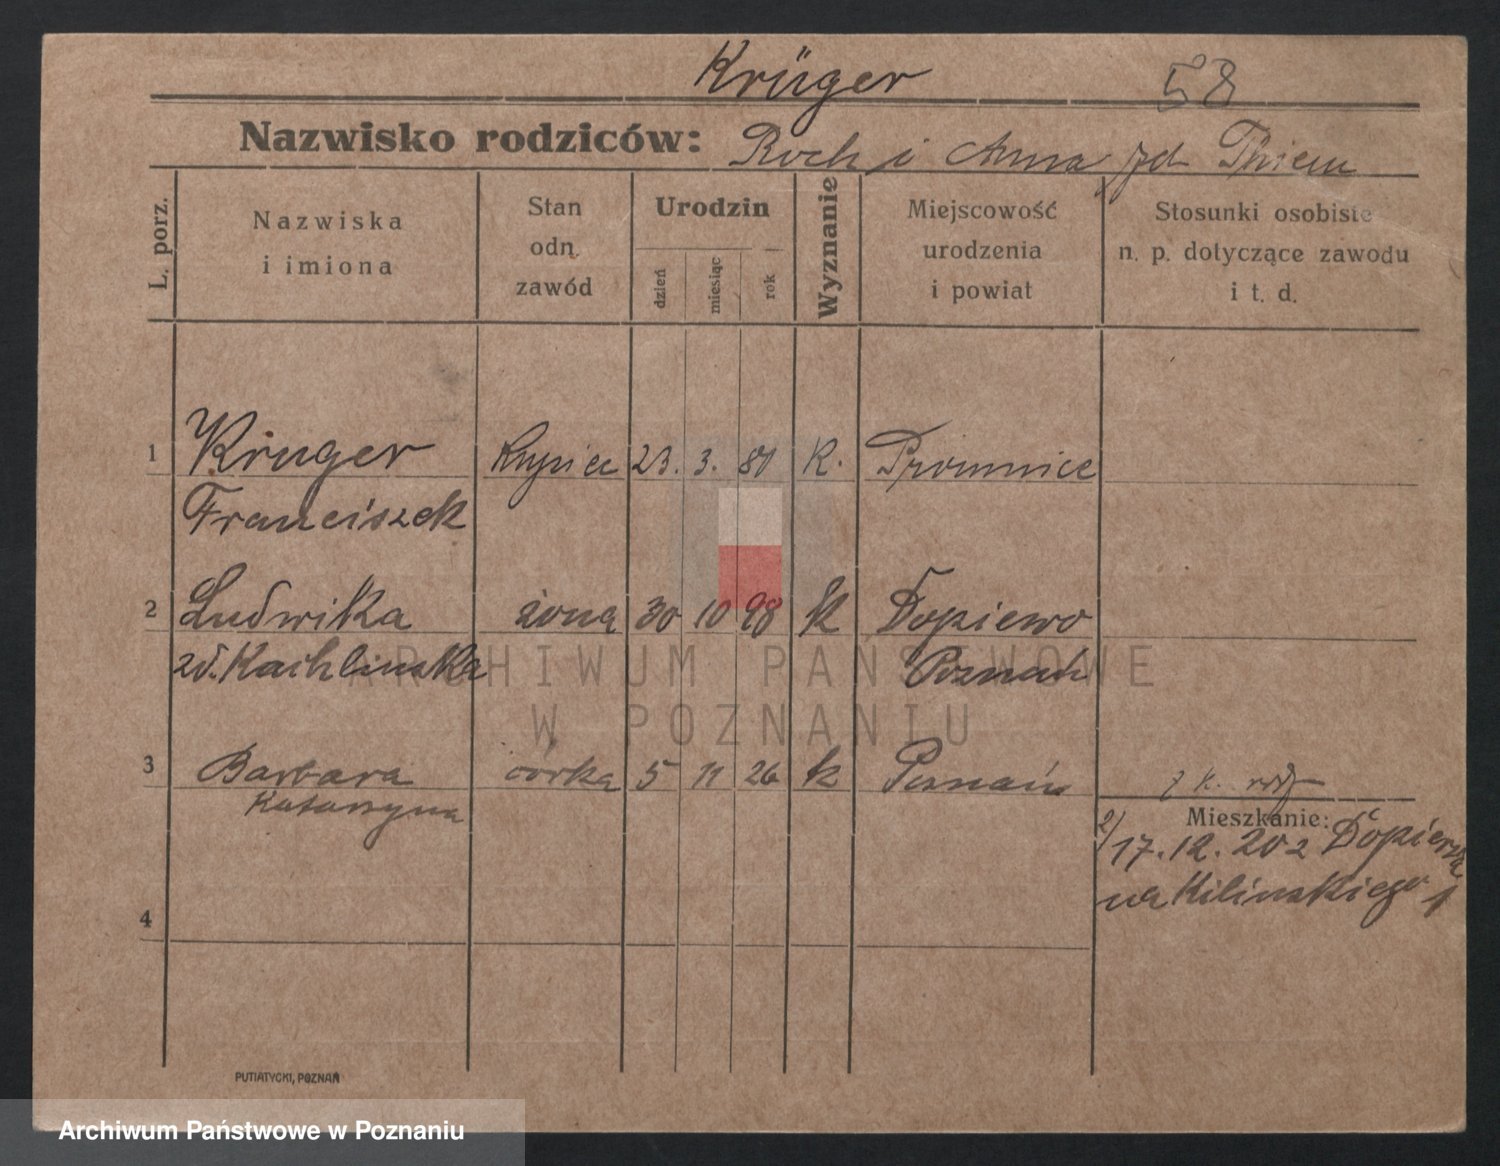 Krüger 58
Nazwisko rodziców: Roch i Anna zd Thiem
L. porz.
Nazwiska
i imiona
Stan
odn.
zawód
Urodzin
dzień
miesiąc
rok
Wyznanie
Miejscowość
urodzenia
i powiat
Stosunki osobiste
n. p. dotyczące zawodu
i t. d.
1 Krüger Kupiec 23. 3. 81 K. Promnice
Franciszek
2 Ludwika żona 30 10 98 k Dopiewo
zd. Kachlinska Poznań
ARCHIWUM PAŃSTWOWE
W POZNANIU
3 Barbara córka 5 11 26 k Poznań
Katarzyna
Mieszkanie:
2/ 17.12.
Kilinskiego 1
4
PUTIATYCKI, POZNAŃ
Archiwum Państwowe w Poznaniu